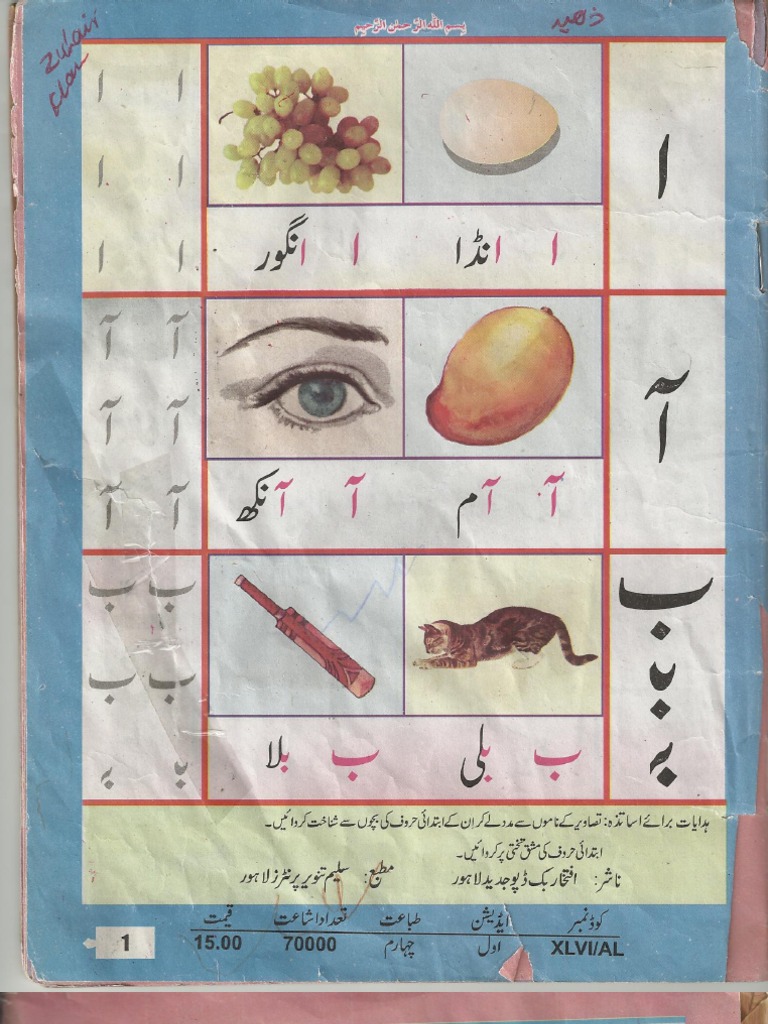 بِسْمِ اللّٰهِ الرَّحْمٰنِ الرَّحِيْمِ
zuhair
ا
ا انڈا ا انگور
ا ا
ا ا
ا ا
آ
آ آم آ آنکھ
آ آ
آ آ
آ آ
ب
ب بلی ب بلا
ب ب
ب ب
ہدایات برائے اساتذہ: تصاویر کے ناموں سے مدد لے کر ان کے ابتدائی حروف کی بچوں سے شناخت کروائیں۔
ابتدائی حروف کی مشق تختی پر کروائیں۔
ناشر: افتخار بک ڈپو جدید لاہور مطبع: سلیم تنویر پرنٹرز لاہور
کوڈ نمبر ایڈیشن طباعت تعداد اشاعت قیمت
XLVI/AL اول چہارم 70000 15.00
1